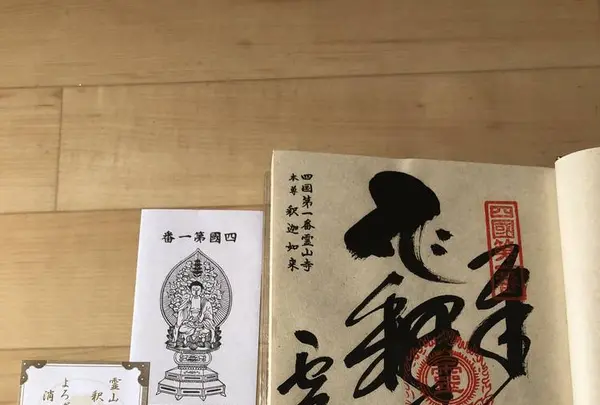 四国第一番霊山寺
本尊 釈迦如来
奉
四國第
釈
霊
四國第一番
霊山
釈
よろ
消